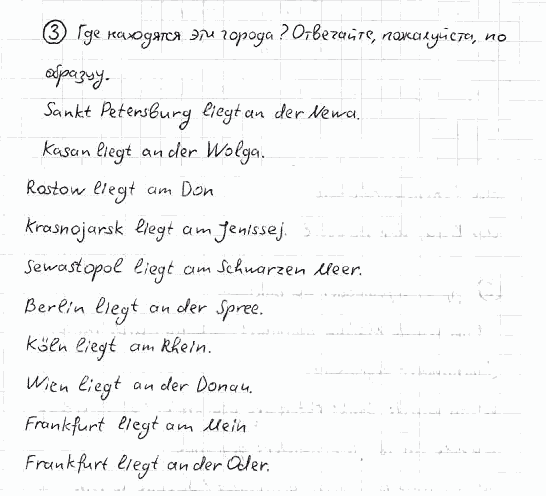 ③ Где находятся эти города? Отвечайте, пожалуйста, по
образцу.
Sankt Petersburg liegt an der Newa.
Kasan liegt an der Wolga.
Rostow liegt am Don
Krasnojarsk liegt am Jenissej.
Sewastopol liegt am Schwarzen Meer.
Berlin liegt an der Spree.
Köln liegt am Rhein.
Wien liegt an der Donau.
Frankfurt liegt am Mein
Frankfurt liegt an der Oder.